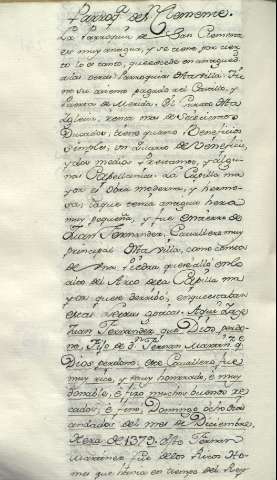 Parroq.ª de S. Clemente.
La Parroquia de San Clemente
es muy antigua, y se tiene por cierto
lo es tanto, que excede en antigue-
dad à otras Parroquias de la Villa: Tie-
ne su asiento pegado del Castillo, y
Puerta de Merida. El Curato de la
Iglesia, renta mas de seiscientos
Ducados; tiene quatro Beneficios
Simples; un Quarto de Beneficio,
y dos medios Prestamos, y algu-
nas Capellanias. La Capilla ma-
yor es obra moderna, y hermo-
sa; la que tenia antigua hera
muy pequeña, y fue entierro de
Juan Fernandez, Cavallero muy
principal de la Villa, como consta
de una Piedra que se alló en lo
alto del Arco de la Capilla ma-
yor que se derribó, en que estaban
estas Letras goticas. Aqui Yaze
Juan Fernandez que Dios perdo-
ne, Fijo de Dⁿ Fernan Martin.z q.e
Dios perdone: este Cavallero fue
muy rico, y muy honrado, é muy
donable, é fizo muchos buenos re-
cados; é finó, Domingo ocho dias
andados del mes de Diciembre,
Hera de 1379. Dho Fernan
Martinez fue de los Ricos Ho-
mes que havia en tiempo del Rey